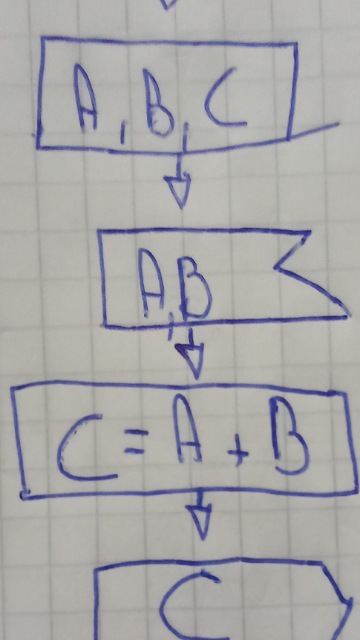 A, B, C
A, B
C = A + B
C